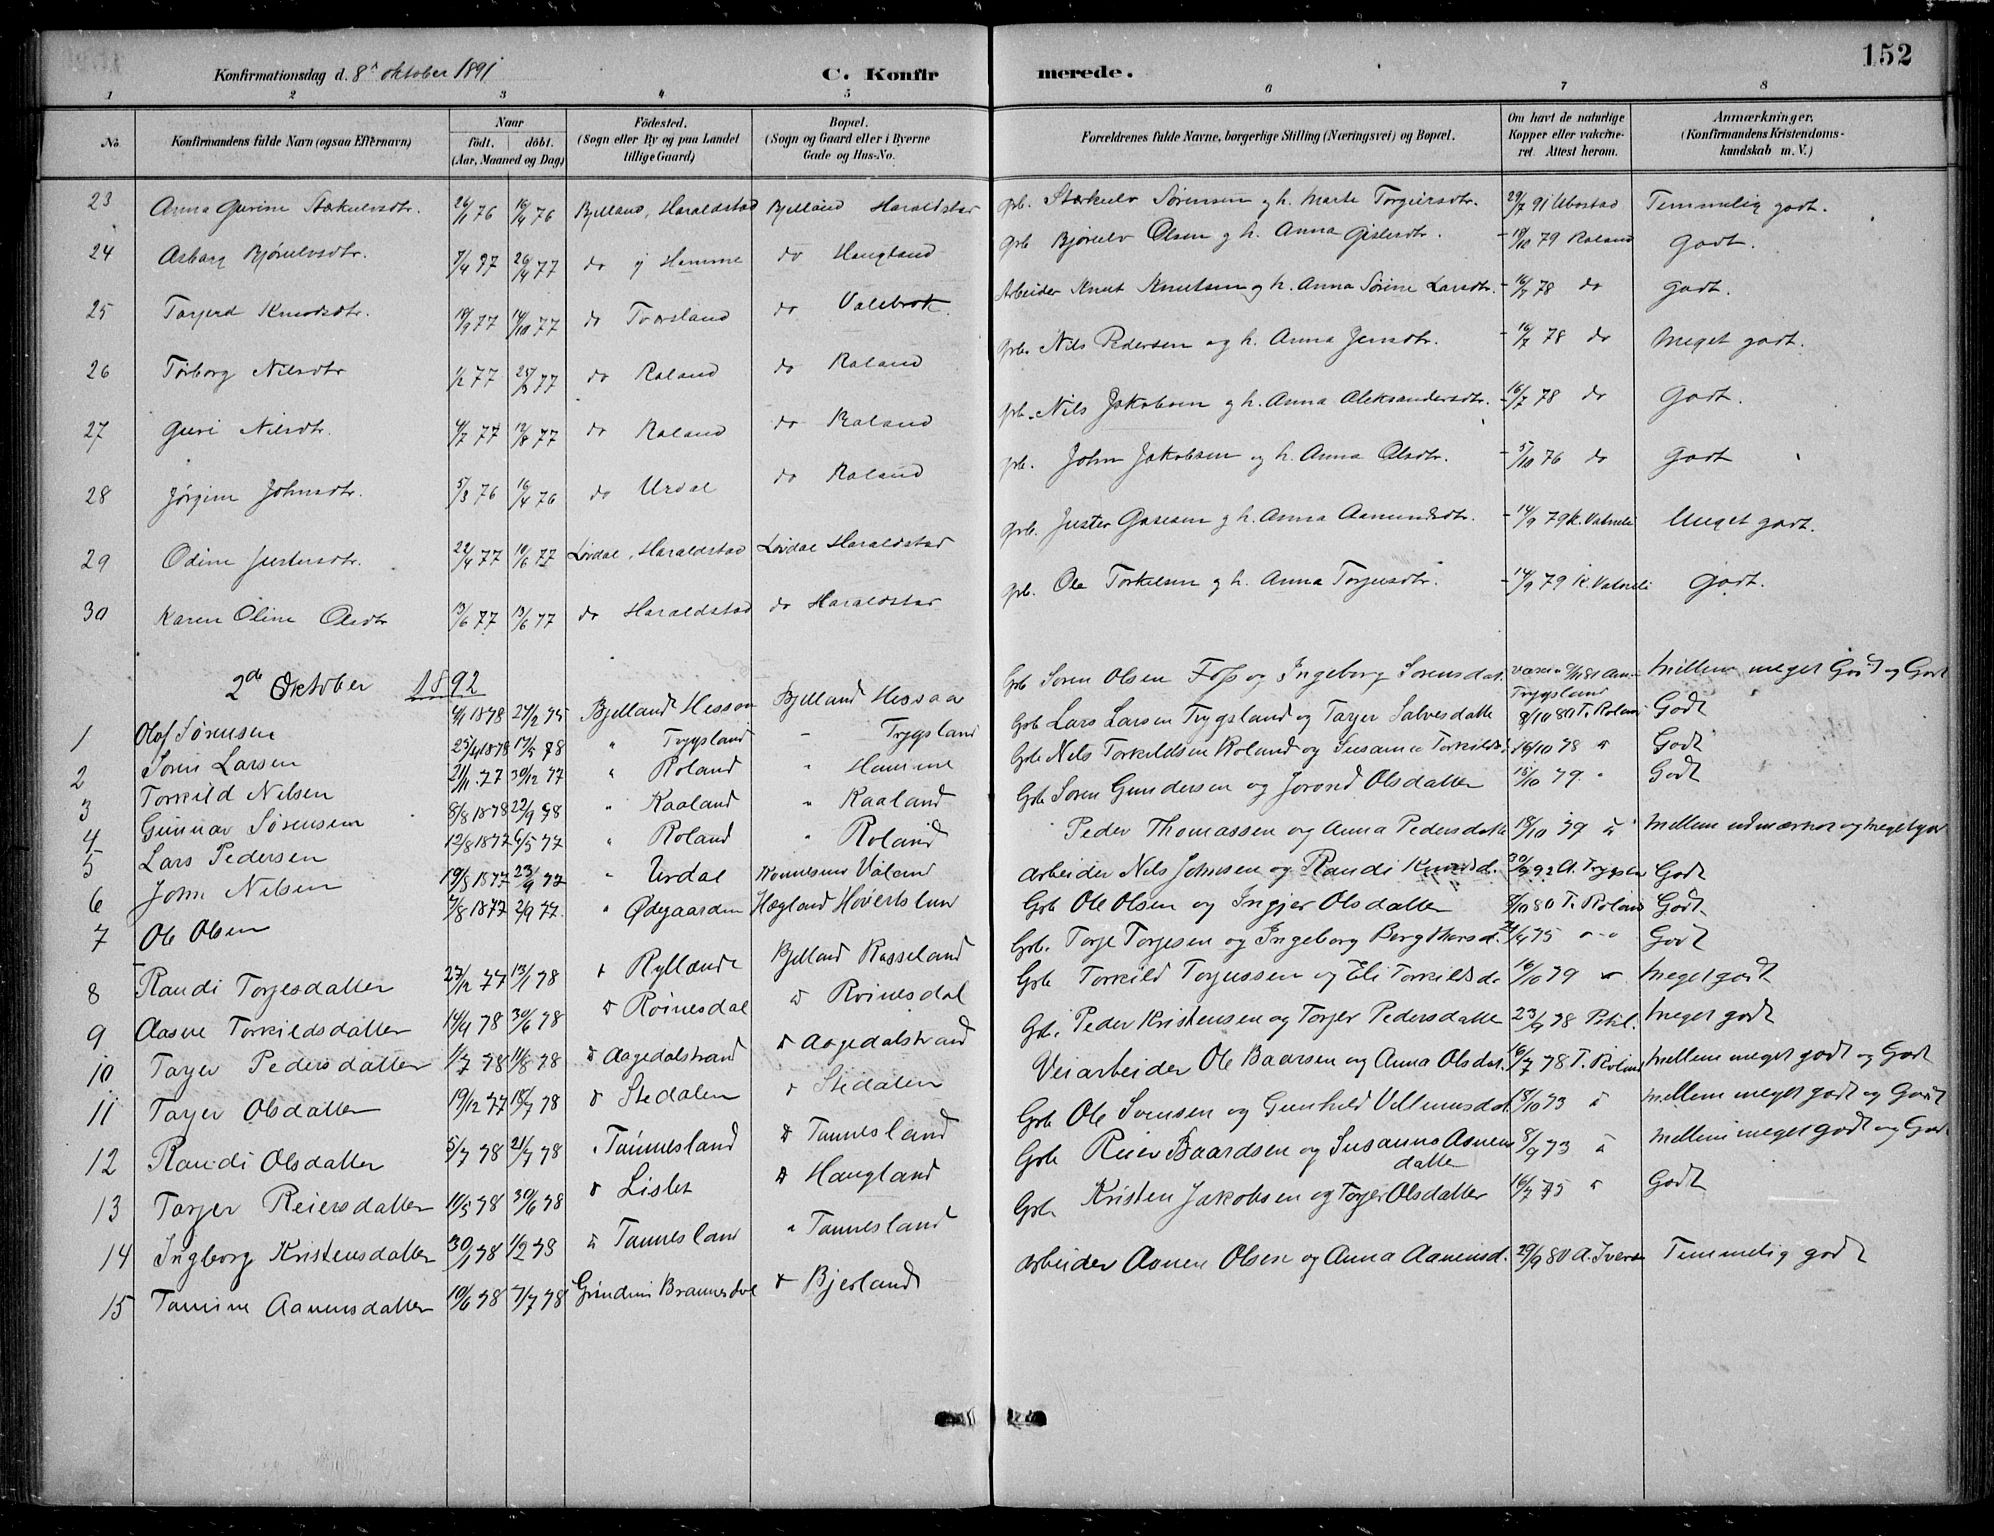 152
Konfirmationsdag d. 8de oktober 1891
C. Konfirmerede.
1 2 3 4 5 6 7 8
No. Konfirmandens fulde Navn (ogsaa Efternavn) Naar födt. döbt. (Aar, Maaned og Dag) Födested. (Sogn eller By og paa Landet tillige Gaard) Bopæl. (Sogn og Gaard eller i Byerne Gade og Hus-No. Forældrenes fulde Navne, borgerlige Stilling (Næringsvei) og Bopæl. Om havt de naturlige Kopper eller vakcineret. Attest herom. Anmærkninger. (Konfirmandens Kristendomskundskab m. V.)
23 Anna Gurine Stærkulvsdtr. 26/1 76 16/4 76 Bjelland, Haraldstad Bjelland Haraldstad grb. Stærkulv Sørensen og h. Marte Torgiersdtr. 29/7 91 Ubostad Temmelig godt.
24 Asbørg Bjørulvsdtr. 7/4 77 26/4 77 do y Homme do Haugland grb Bjørulv Olsen og h. Anna Gislesdtr. - 18/10 79 Roland Godt.
25 Tarjerd Knudsdtr. 18/9 77 14/10 77 do Tværsland do Valebrok Arbeider Knut Knutsen og h. Anna Sørine Larsdtr. - 16/7 78 do godt.
26 Tørborg Nilsdtr 1/2 77 25/2 77 do Roland do Roland grb. Nils Pedersen og h. Anna Jensdtr. - 16/7 78 do Meget godt.
27 Guri Nilsdtr. 4/7 77 12/8 77 do Roland do Roland grb. Nils Jakobsen og h. Anna Aleksandersdtr. - 16/7 78 do Godt.
28 Jørgine Johnsdtr. 5/3 76 16/4 76 do Urdal do Roland grb. John Jakobsen og h. Anna Olsdtr. - 5/10 76 do Godt
29 Odine Justersdtr. 22/4 77 10/6 77 Løvdal, Haraldstad Løvdal Haraldstad grb. Juster Gasesen og h. Anna Aamundsdtr. - 14/9 79 K. Vatneli Meget godt.
30 Karen Oline Olsdtr 13/6 77 13/6 77 do Haraldstad do Haraldstad grb. Ole Torkelsen og h. Anna Torjusdtr. - 14/9 79 K. Vatneli Godt.
2de Oktober 1892
1 Olaf Sørensen 4/1 1878 24/2 78 Bjelland Hessaa Bjelland Hessaa Grb Søren Olsen Foss og Ingeborg Sørensdat. Trygsland Mellem meget Godt og Godt
2 Søren Larsen 25/4 1878 17/5 78 " Trygsland - Trygsland Grb Lars Larsen Trygsland og Tarjer Salvesdatte 8/10 80 T. Roland Godt
3 Torkild Nilsen 21/11 77 30/12 77 " Roland " Homme Grb Nils Torkildsen Roland og Susanna Torkildsd 16/10 78 " Godt
4 Gunnar Sørensen 8/8 1878 22/9 78 " Kaaland " Kaaland Grb Søren Gundersen og Jorond Olsdatter 15/10 79 " Godt
5 Lars Pedersen 12/8 1877 6/5 77 " Roland " Roland Peder Thomassen og Anna Pedersdatte 18/10 79 " Mellem udmærket og meget godt
6 John Nilsen 19/5 1877 23/9 77 " Urdal Konnesmo Valand Arbeider Nils Johnsen og Randi Knudsd. 30/9 92 A. Trygsen Godt
7 Ole Olsen 7/8 1877 2/9 77. " Ødegaarden Hægland Høvertslun Grb Ole Olsen og Ingjer Olsdatter 8/10 80 T. Roland Godt
8 Randi Torjesdatter 27/12 77 13/1 78 " Ryllande Bjelland Rosseland Grb. Torje Torjesen og Ingeborg Bergthorsd. 2/4 75 " " Godt
9 Aasne Torkildsdatter 14/4 78 30/6 78 " Roinesdal " Roinesdal Grb Torkild Torjussen og Eli Torkildsd. 16/10 79 " Meget godt
10 Tarjer Pedersdatter 1/7 78 11/8 78 " Aagedalstrand " Aagedalstrand Grb. Peder Kristensen og Torjer Pedersdatte 23/9 78 Pikl. Meget godt
11 Tarjer Olsdatter 19/12 77 18/7 78 " Stedalen " Stedalen Veiarbeider Ole Baarsen og Anna Olsdat. 16/7 78 T. Roland Mellem meget godt og Godt
12 Randi Olsdatter 5/7 78 21/7 78 " Tunnesland " Tunnesland Grb Ole Svensen og Gunhild Villumsdat. 18/10 73 " Mellem meget godt og Godt
13 Tarjer Reiersdatter 11/5 78 30/6 78 " Lislet " Haugland Grb Reier Baardsen og Susanna Asnesdatter 8/9 73 " Mellem meget godt og Godt
14 Ingborg Kristensdatter 30/1 78 1/2 78 " Tunnesland " Tunnesland Grb Kristen Jakobsen og Torjer Olsdatter 16/7 75 " Godt
15 Tomine Aanensdatter 10/6 78 7/7 78 Grindem Brannesdal " Bjerland Arbeider Aanen Olsen og Anna Aanensd. 29/9 80 A. Iversen Temmelig godt